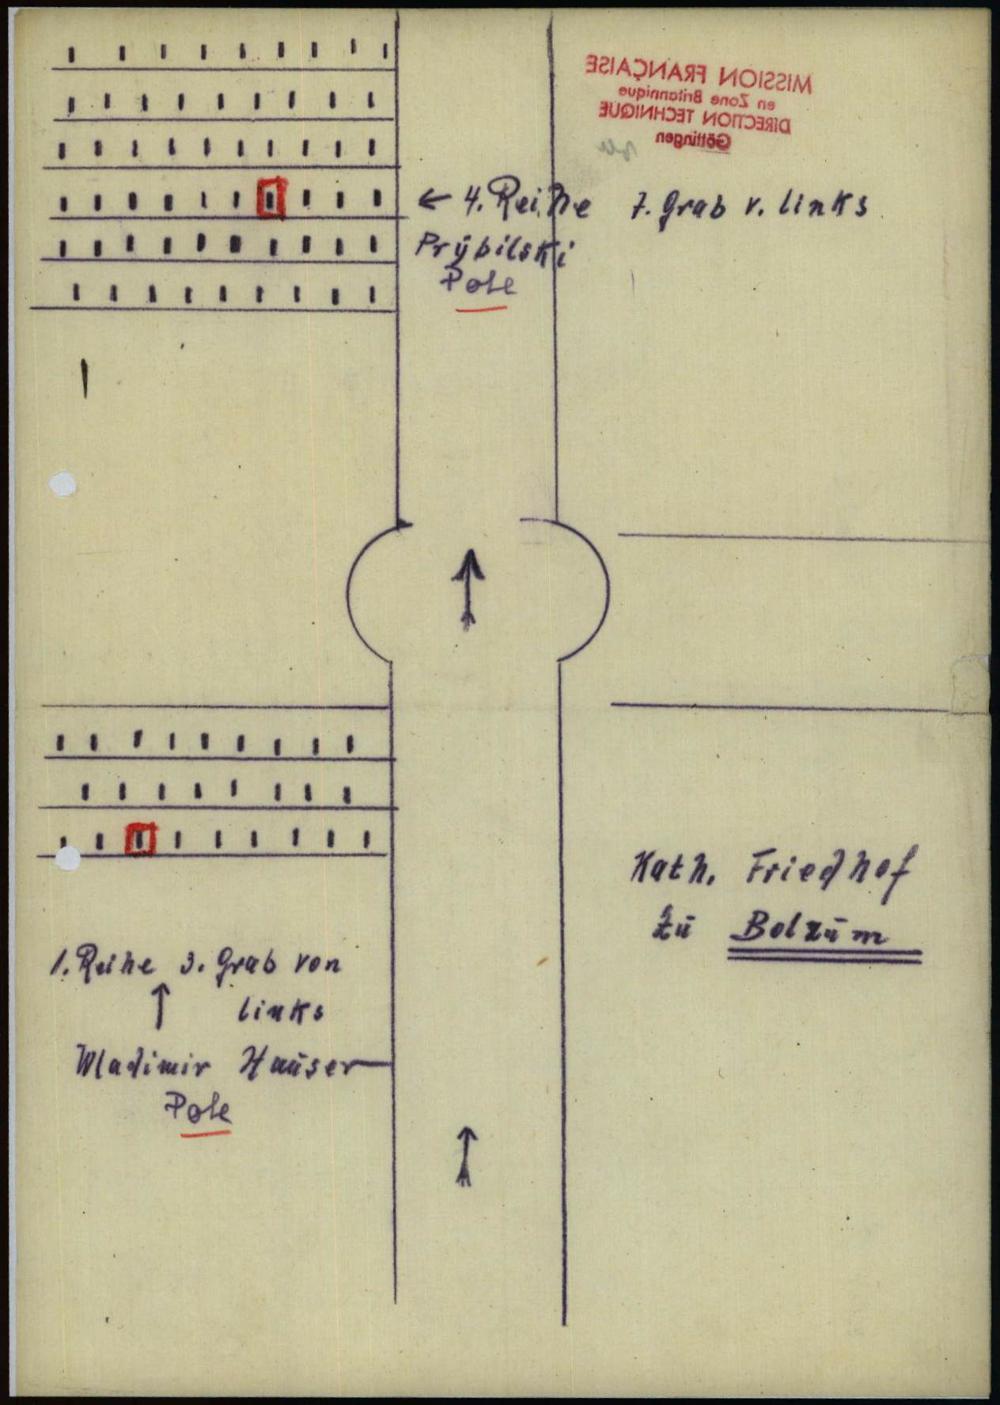 MISSION FRANÇAISE
en Zone Britannique
DIRECTION TECHNIQUE
Göttingen
← 4. Reihe 7. Grab v. links
Prÿbilski
Pole
Kath. Friedhof
zu Bolzum
1. Reihe 3. Grab von
links
Wladimir Hauser
Pole